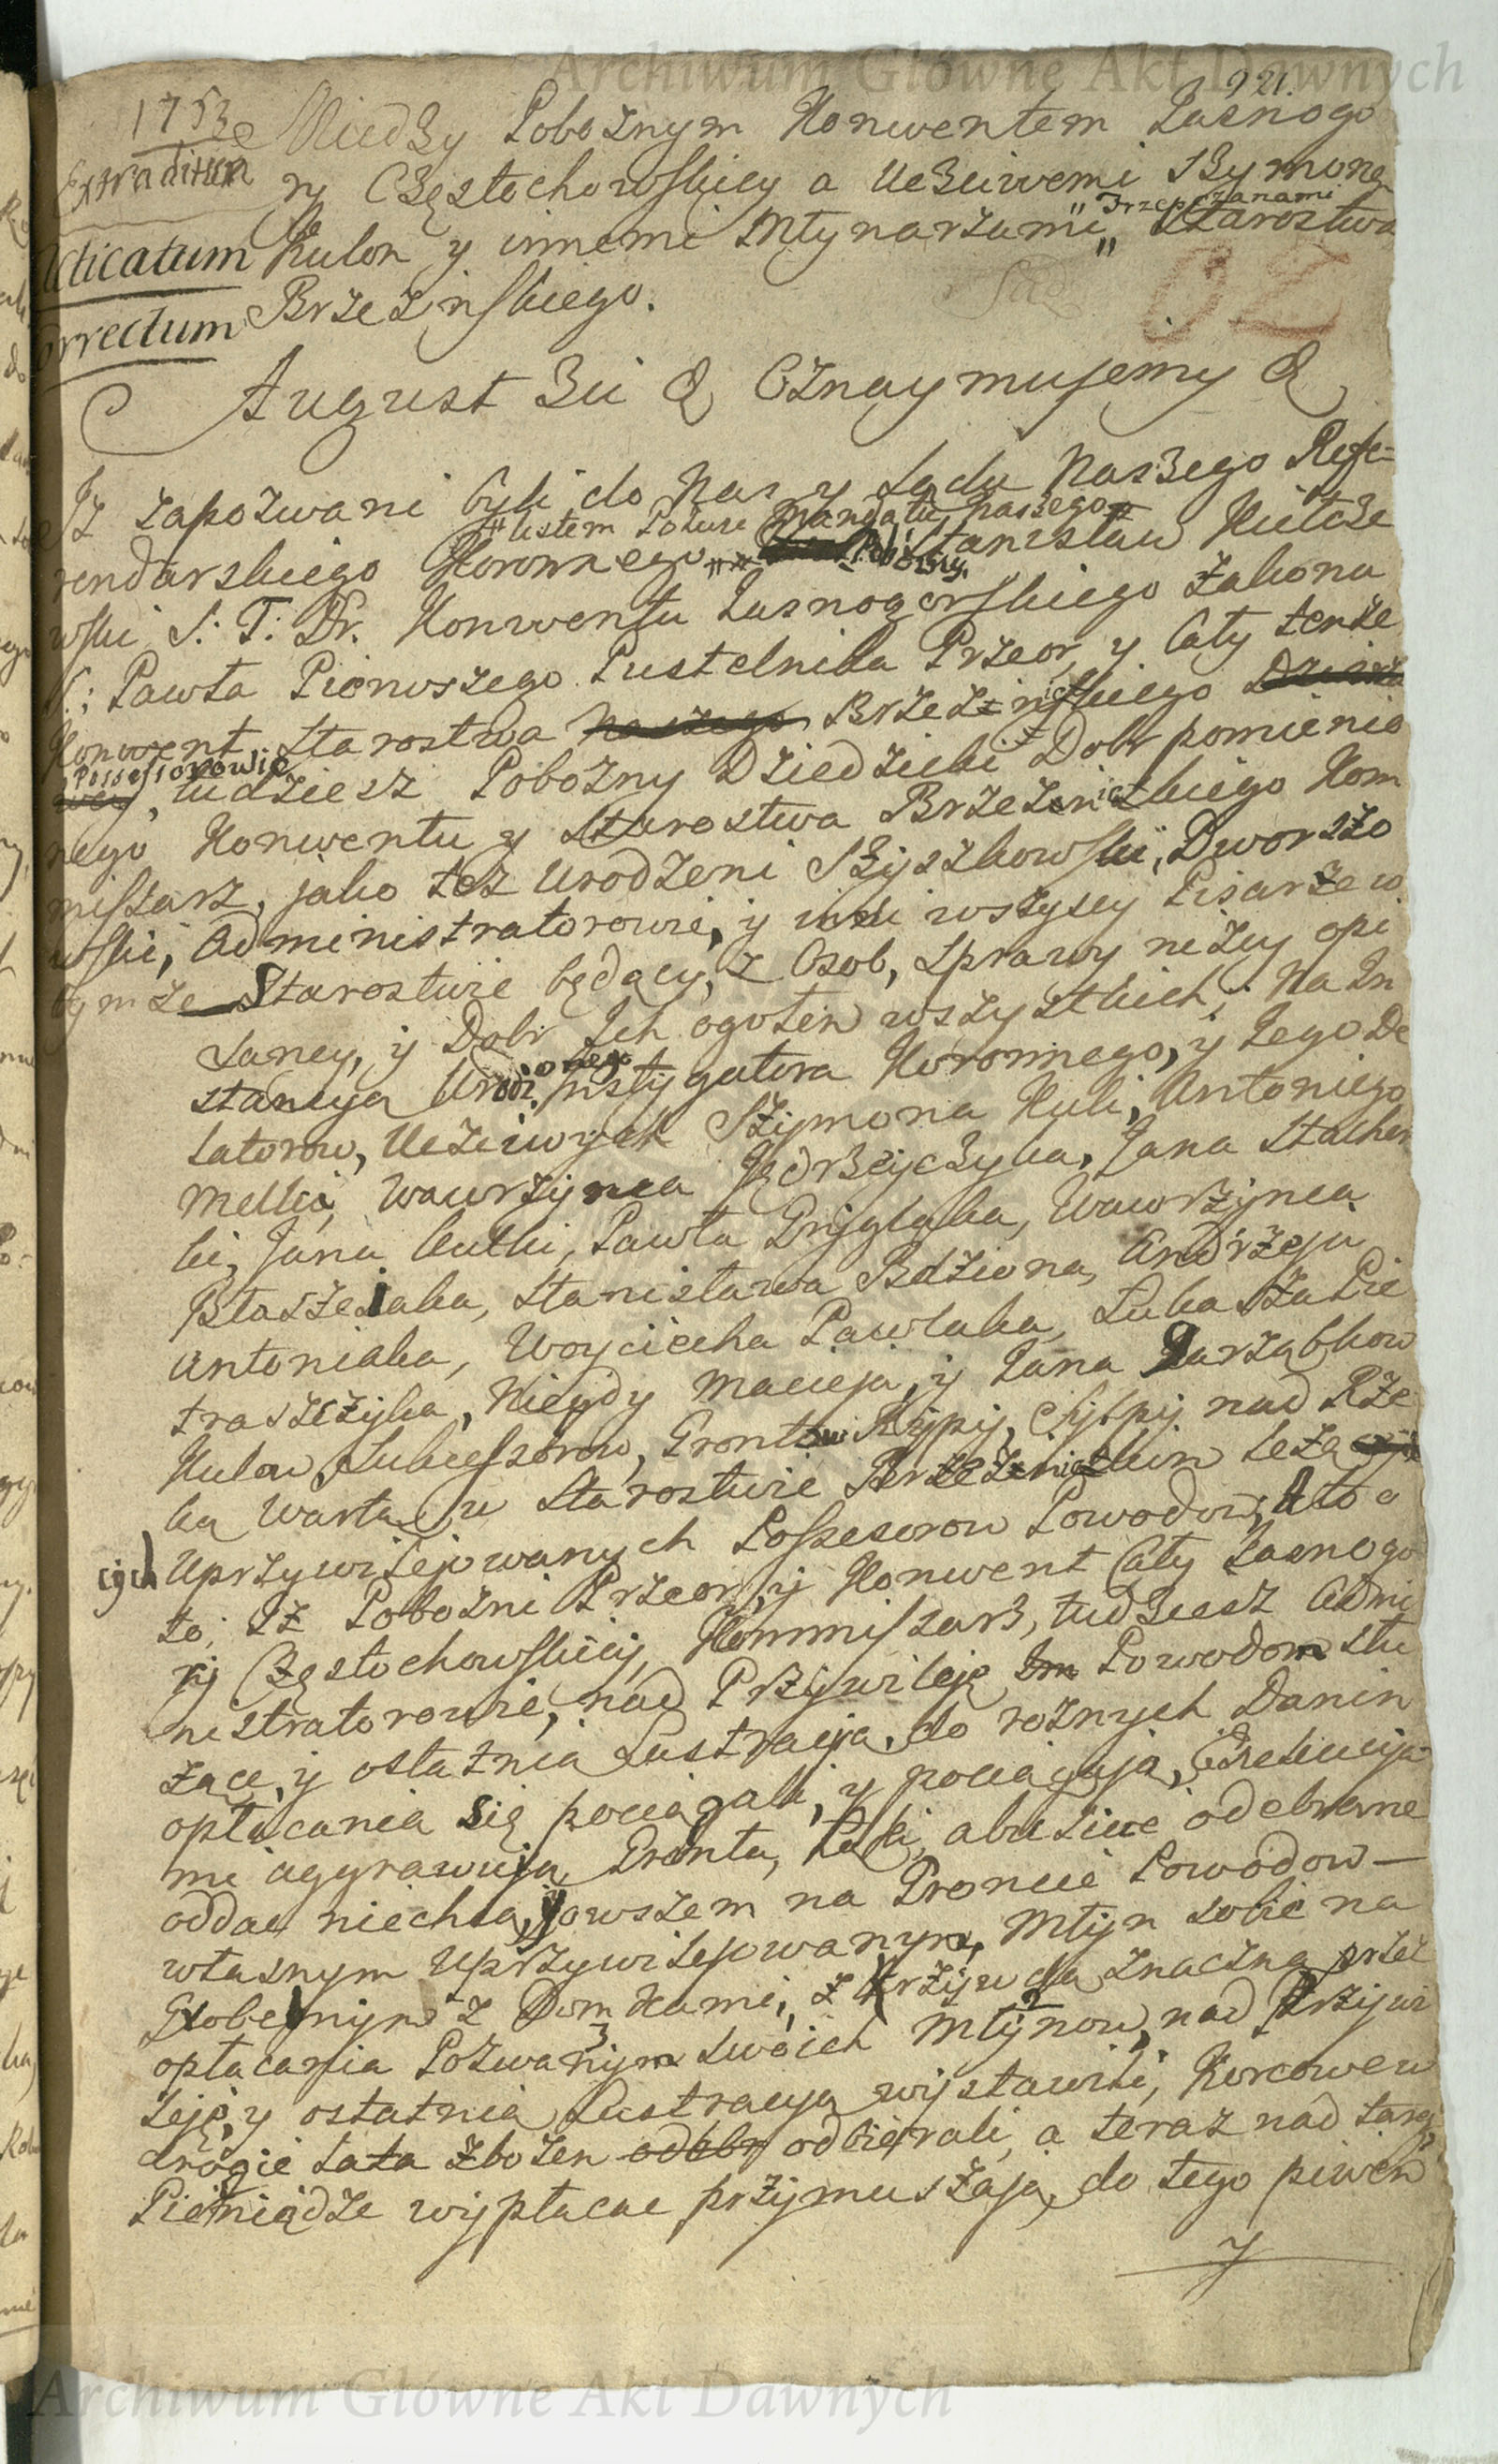 Archiwum Główne Akt Dawnych
921.
1753
Extraditum
Między Pobożnym Konwentem Jasnogo
ry Częstochowskiey a Uczciwemi Szymone
Kulon y innemi Młynarzami Starostwa
Brzezinskiego.
August III & Oznaymujemy &
Iż zapozwani byli do Nas y Sądu Naszego Refe-
listem Pozwu Mandatu Naszego
rendarskiego Koronnego Pobożny Stanisław Kiełcze
wski S: T: Dr. Konwentu Jasnogorskiego Zakonu
S: Pawła Pierwszego Pustelnika Przeor, y Cały tenże
Konwent Starostwa Naszego Brzeznickiego
Possessorowie, tudziesz Pobożny Dziedzicki Dobr pomienio
nego Konwentu y Starostwa Brzeznickiego Kom
missarz, jako też Urodzeni Szyszkowski, Dworszo
wski, Administratorowie, y inni wszyscy Pisarze w
tymże Starostwie będący, z Osob, Sprawy niżey opi
saney, y Dobr Ich ogołem wszystkich, Na In
stancyą Urodzonego Instygatora Koronnego, y Jego De
latorow, Uczciwych Szymona Kuli, Antoniego
Melki, Wawrzynca Jędrzejczyka, Jana Stacher
ki, Jana Kutki, Pawła Gryglaka, Wawrzynca
Błaszczaka, Stanisława Bdziona, Andrzeja
Antoniaka, Woyciecha Pawlaka, Łukasza Pie
traszczyka, Niegdy Macieja, y Jana Jarząbkow
Kulow Sukcessorow, Grontow Rypij, nad Rze
ką Wartą w Starostwie Brzeznickim leżą
cych Uprzywilejowanych Possesorow Powodow, A to o
to, Iż Pobożni Przeor, y Konwent Cały Jasnogo
ry Częstochowskiey, Kommissarz, tudziesz Admi
nistratorowie, nad Przywileje Powodom słu
żące, y ostatnią Lustracyą, do rożnych Danin
opłacania się pociągali, y pociągają, Exekucyja
mi aggrawują, Gronta, Łąki, abusive odebrane
oddać niechcą, y owszem na Groncie Powodow —
własnym Uprzywilejowanym, Młyn sobie na
z Domkami, z Krzywdą znaczną przez
opłacania Pozwanym swoich Młynow, nad Przywi
leje, y ostatnią Lustracyą wystawili, Korcowe w
drogie lata zbożem odbierali, a teraz nad taxę
Pieniądze wypłacać przymuszają, do tego piwem
y
Archiwum Główne Akt Dawnych